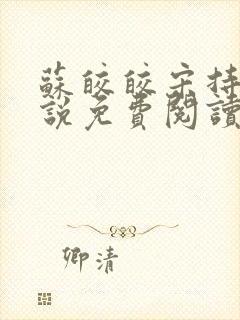 蘇皎皎宋持
說免費閱讀
卿清